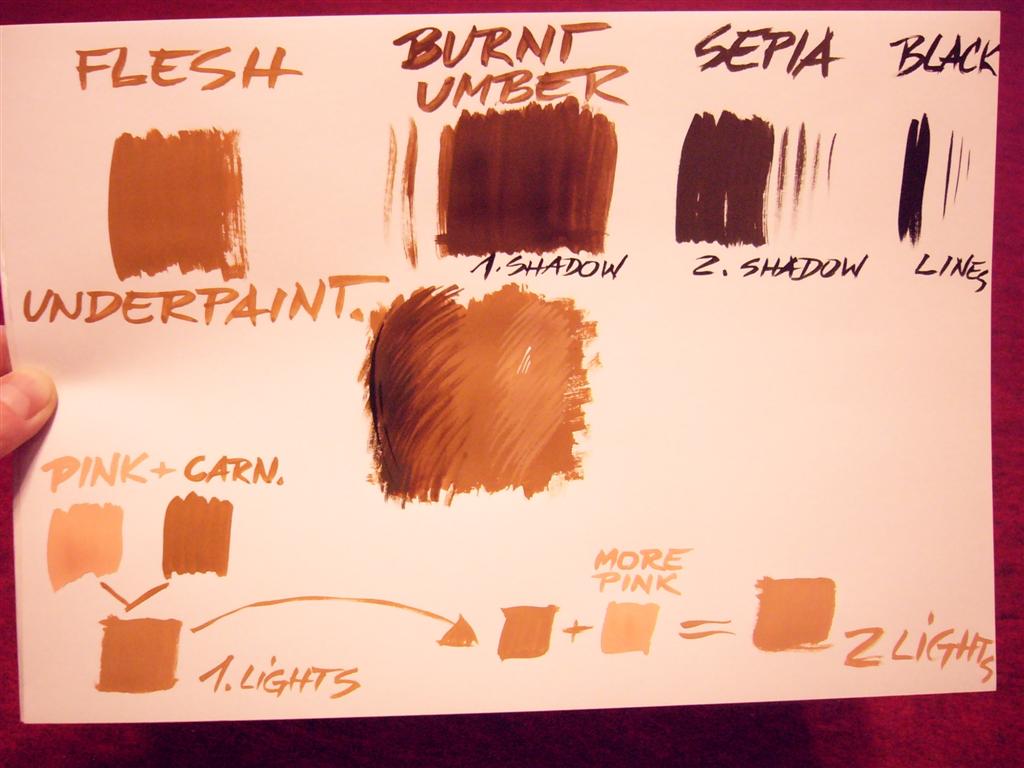 FLESH
BURNT
UMBER
SEPIA
BLACK
1. SHADOW
2. SHADOW
LINES
UNDERPAINT.
PINK + CARN.
MORE
PINK
+
=
1. LIGHTS
2 LIGHTS